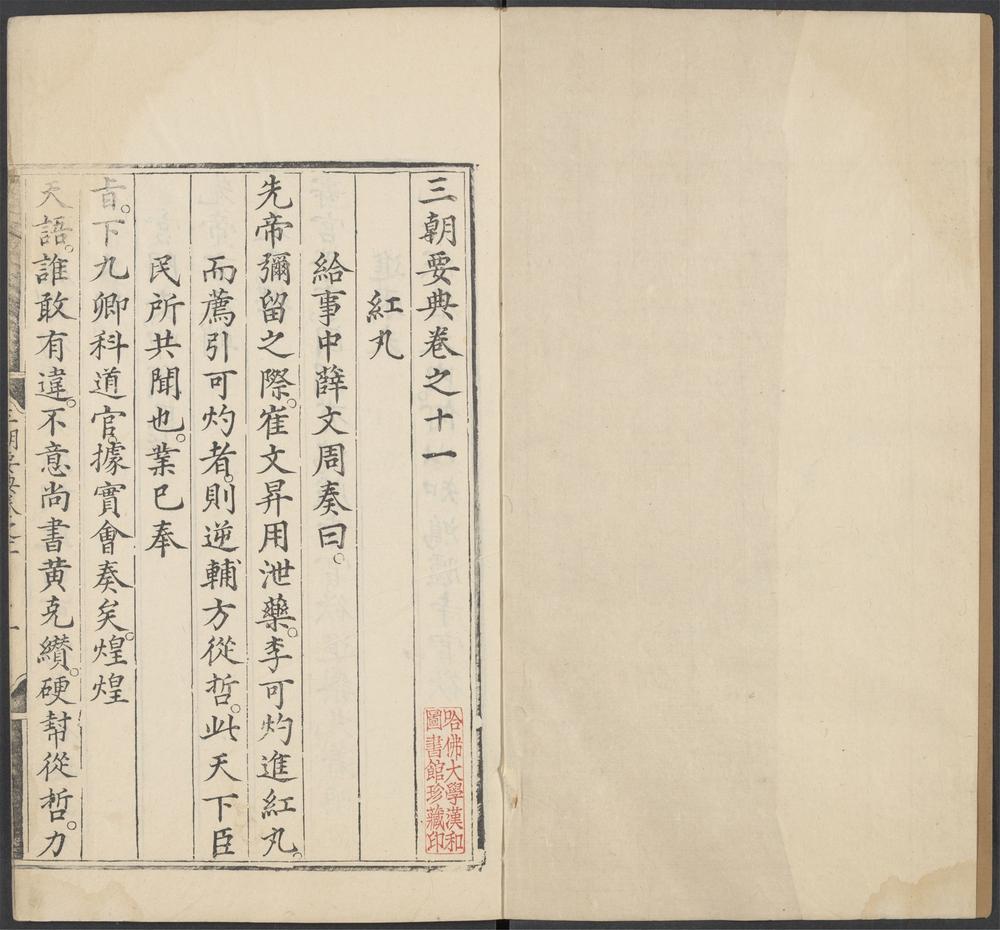 三朝要典卷之十一
紅丸
給事中薛文周奏曰。
先帝彌留之際。崔文昇用泄藥。李可灼進紅丸。
而薦引可灼者。則逆輔方從哲。此天下臣
民所共聞也。業已奉
旨。下九卿科道官。據實會奏矣。煌煌
天語。誰敢有違。不意尚書黄克纘。硬幇從哲。力
哈佛大學漢和
圖書館珍藏印